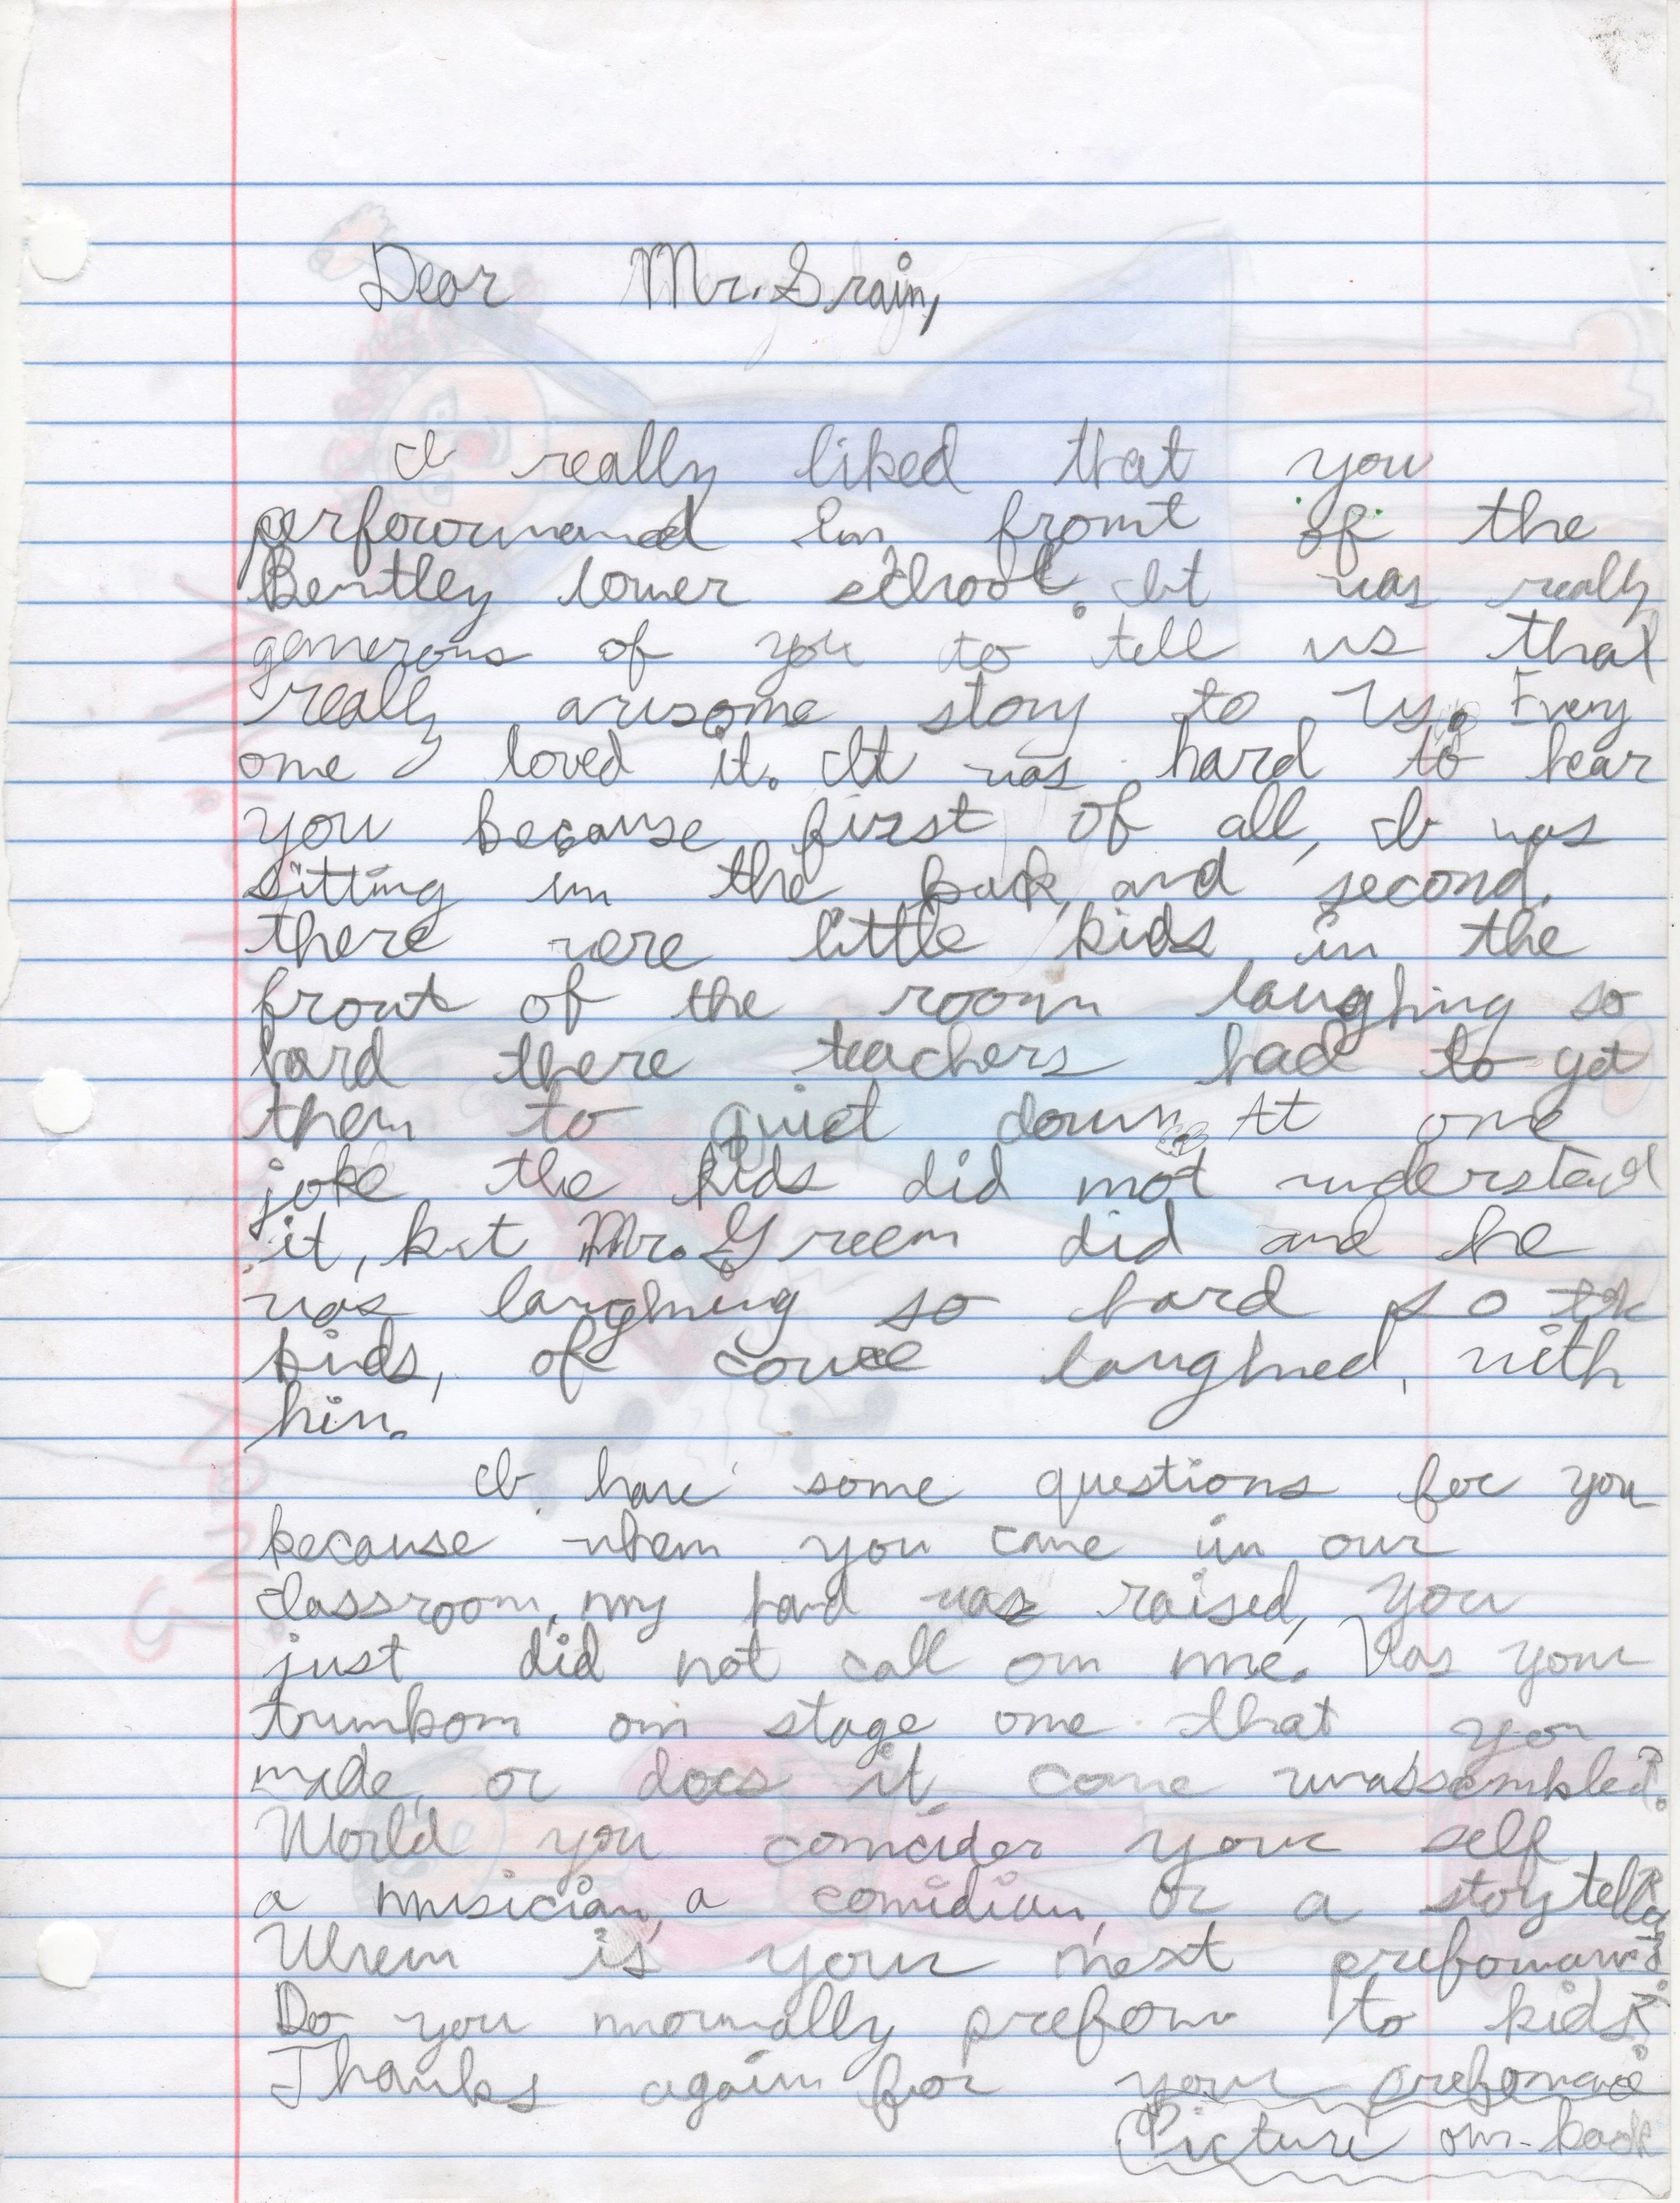 Dear Mr. Srain,
I really liked that you
perforormand in front of the
Bentley lower school. It was really
generous of you to tell us that
really awsome story to us. Every
one loved it. It was hard to hear
you because first of all, I was
sitting in the back, and second,
there were little kids in the
front of the room laughing so
hard there teachers had to get
them to quiet down. At one
joke the kids did not understand
it, but Mr. Green did and he
was laughing so hard so the
kids, of cource laughed, with
him.
I have some questions for you
because when you came in our
classroom, my hand was raised, you
just did not call on me. Was your
trumbom on stage one that you
made, or does it come unassembled?
World you concider your self
a musician, a comidian, or a storyteller?
When is your next prefomance?
Do you normally preform to kids?
Thanks again for your prefomance
Picture on back